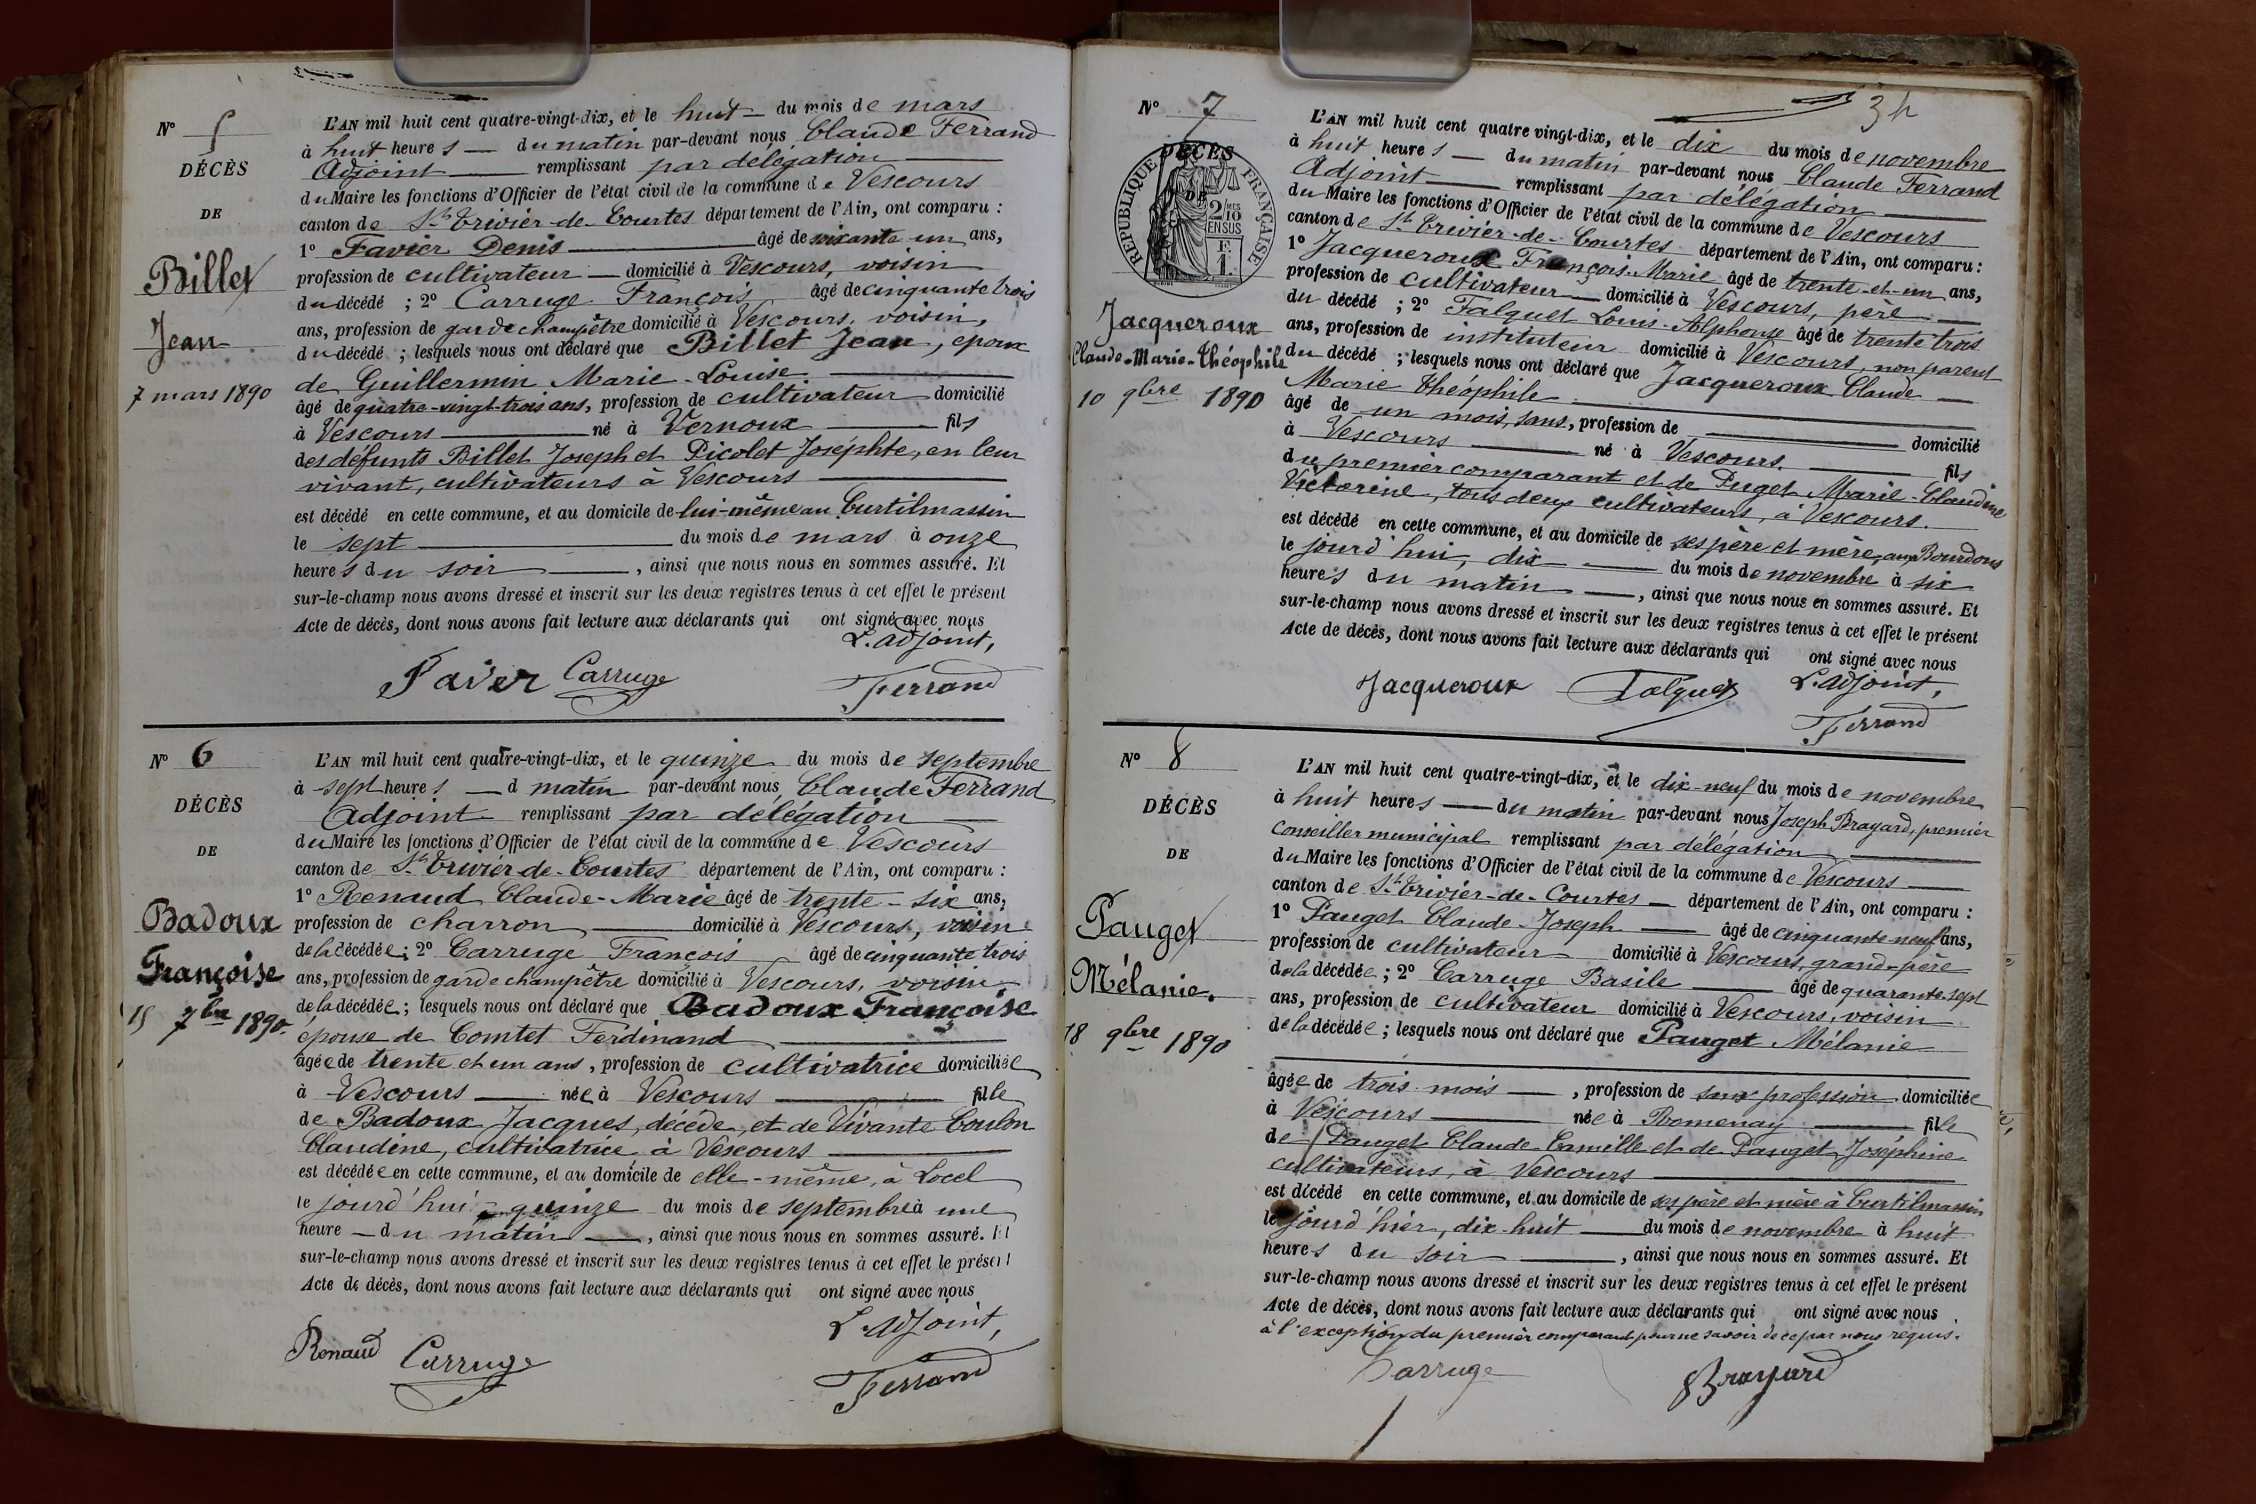 N° 5
DÉCÈS
DE
Billet
Jean
7 mars 1890
L'AN mil huit cent quatre-vingt-dix, et le huit du mois de mars
à huit heures du matin par-devant nous Claude Ferrand
Adjoint remplissant par délégation
du Maire les fonctions d'Officier de l'état civil de la commune de Vescours
canton de St Trivier-de-Courtes département de l'Ain, ont comparu :
1° Favier Denis âgé de soixante un ans,
profession de cultivateur domicilié à Vescours, voisin
du décédé ; 2° Carruge François âgé de cinquante trois
ans, profession de garde champêtre domicilié à Vescours, voisin,
du décédé ; lesquels nous ont déclaré que Billet Jean, époux
de Guillermin Marie-Louise
âgé de quatre-vingt-trois ans, profession de cultivateur domicilié
à Vescours né à Vernoux fils
des défunts Billet Joseph et Picolet Joséphte, en leur
vivant, cultivateurs à Vescours
est décédé en cette commune, et au domicile de lui-même au Curtilmassin
le sept du mois de mars à onze
heures du soir, ainsi que nous nous en sommes assuré. Et
sur-le-champ nous avons dressé et inscrit sur les deux registres tenus à cet effet le présent
Acte de décès, dont nous avons fait lecture aux déclarants qui ont signé avec nous
L'adjoint,
Favier Carruge Ferrand
N° 6
DÉCÈS
DE
Badoux
Françoise
15 7bre 1890.
L'AN mil huit cent quatre-vingt-dix, et le quinze du mois de septembre
à sept heures d matin par-devant nous Claude Ferrand
Adjoint remplissant par délégation
du Maire les fonctions d'Officier de l'état civil de la commune de Vescours
canton de St Trivier-de-Courtes département de l'Ain, ont comparu :
1° Renaud Claude-Marie âgé de trente-six ans,
profession de charron domicilié à Vescours, voisin
de la décédée ; 2° Carruge François âgé de cinquante trois
ans, profession de garde champêtre domicilié à Vescours, voisin
de la décédée ; lesquels nous ont déclaré que Badoux Françoise
épouse de Comtet Ferdinand
âgée de trente et un ans, profession de cultivatrice domiciliée
à Vescours née à Vescours fille
de Badoux Jacques, décédé, et de Vivante Coulon
Claudine, cultivatrice à Vescours
est décédée en cette commune, et au domicile de elle-même, à Locel
le jourd'hui quinze du mois de septembre à une
heure du matin, ainsi que nous nous en sommes assuré. Et
sur-le-champ nous avons dressé et inscrit sur les deux registres tenus à cet effet le présent
Acte de décès, dont nous avons fait lecture aux déclarants qui ont signé avec nous
L'adjoint,
Renaud Carruge Ferrand
34
N° 7
DÉCÈS
DE
RÉPUBLIQUE FRANÇAISE
2 MES
10
EN SUS
Jacqueroux
Claude-Marie-Théophile
10 9bre 1890
L'AN mil huit cent quatre vingt-dix, et le dix du mois de novembre
à huit heures du matin par-devant nous Claude Ferrand
Adjoint remplissant par délégation
du Maire les fonctions d'Officier de l'état civil de la commune de Vescours
canton de St Trivier-de-Courtes département de l'Ain, ont comparu :
1° Jacqueroux François-Marie âgé de trente-et-un ans,
profession de cultivateur domicilié à Vescours, père
du décédé ; 2° Falquet Louis-Alphonse âgé de trente trois
ans, profession de instituteur domicilié à Vescours, non parent
du décédé ; lesquels nous ont déclaré que Jacqueroux Claude
Marie Théophile
âgé de un mois, sans, profession de domicilié
à Vescours né à Vescours. fils
du premier comparant et de Puget Marie-Claudine
Victorine, tous deux cultivateurs, à Vescours.
est décédé en cette commune, et au domicile de ses père et mère, aux Bourdons
le jourd'hui, dix du mois de novembre à six
heures du matin, ainsi que nous nous en sommes assuré. Et
sur-le-champ nous avons dressé et inscrit sur les deux registres tenus à cet effet le présent
Acte de décès, dont nous avons fait lecture aux déclarants qui ont signé avec nous
L'adjoint,
Jacqueroux Falquet Ferrand
N° 8
DÉCÈS
DE
Pauget
Mélanie.
18 9bre 1890
L'AN mil huit cent quatre-vingt-dix, et le dix-neuf du mois de novembre
à huit heures du matin par-devant nous Joseph Brayard, premier
Conseiller municipal remplissant par délégation
du Maire les fonctions d'Officier de l'état civil de la commune de Vescours
canton de St Trivier-de-Courtes département de l'Ain, ont comparu :
1° Pauget Claude-Joseph âgé de cinquante neuf ans,
profession de cultivateur domicilié à Vescours, grand-père
de la décédée ; 2° Carruge Basile âgé de quarante-sept
ans, profession de cultivateur domicilié à Vescours, voisin
de la décédée ; lesquels nous ont déclaré que Pauget Mélanie
âgée de trois mois, profession de sans profession domiciliée
à Vescours née à Romenay fille
de Pauget Claude-Camille et de Pauget Joséphine
cultivateurs, à Vescours
est décédé en cette commune, et au domicile de ses père et mère à Curtilmassin
le jourd'hier, dix huit du mois de novembre à huit
heures du soir, ainsi que nous nous en sommes assuré. Et
sur-le-champ nous avons dressé et inscrit sur les deux registres tenus à cet effet le présent
Acte de décès, dont nous avons fait lecture aux déclarants qui ont signé avec nous
à l'exception du premier comparant pour ne savoir de ce par nous requis.
Carruge Brayard